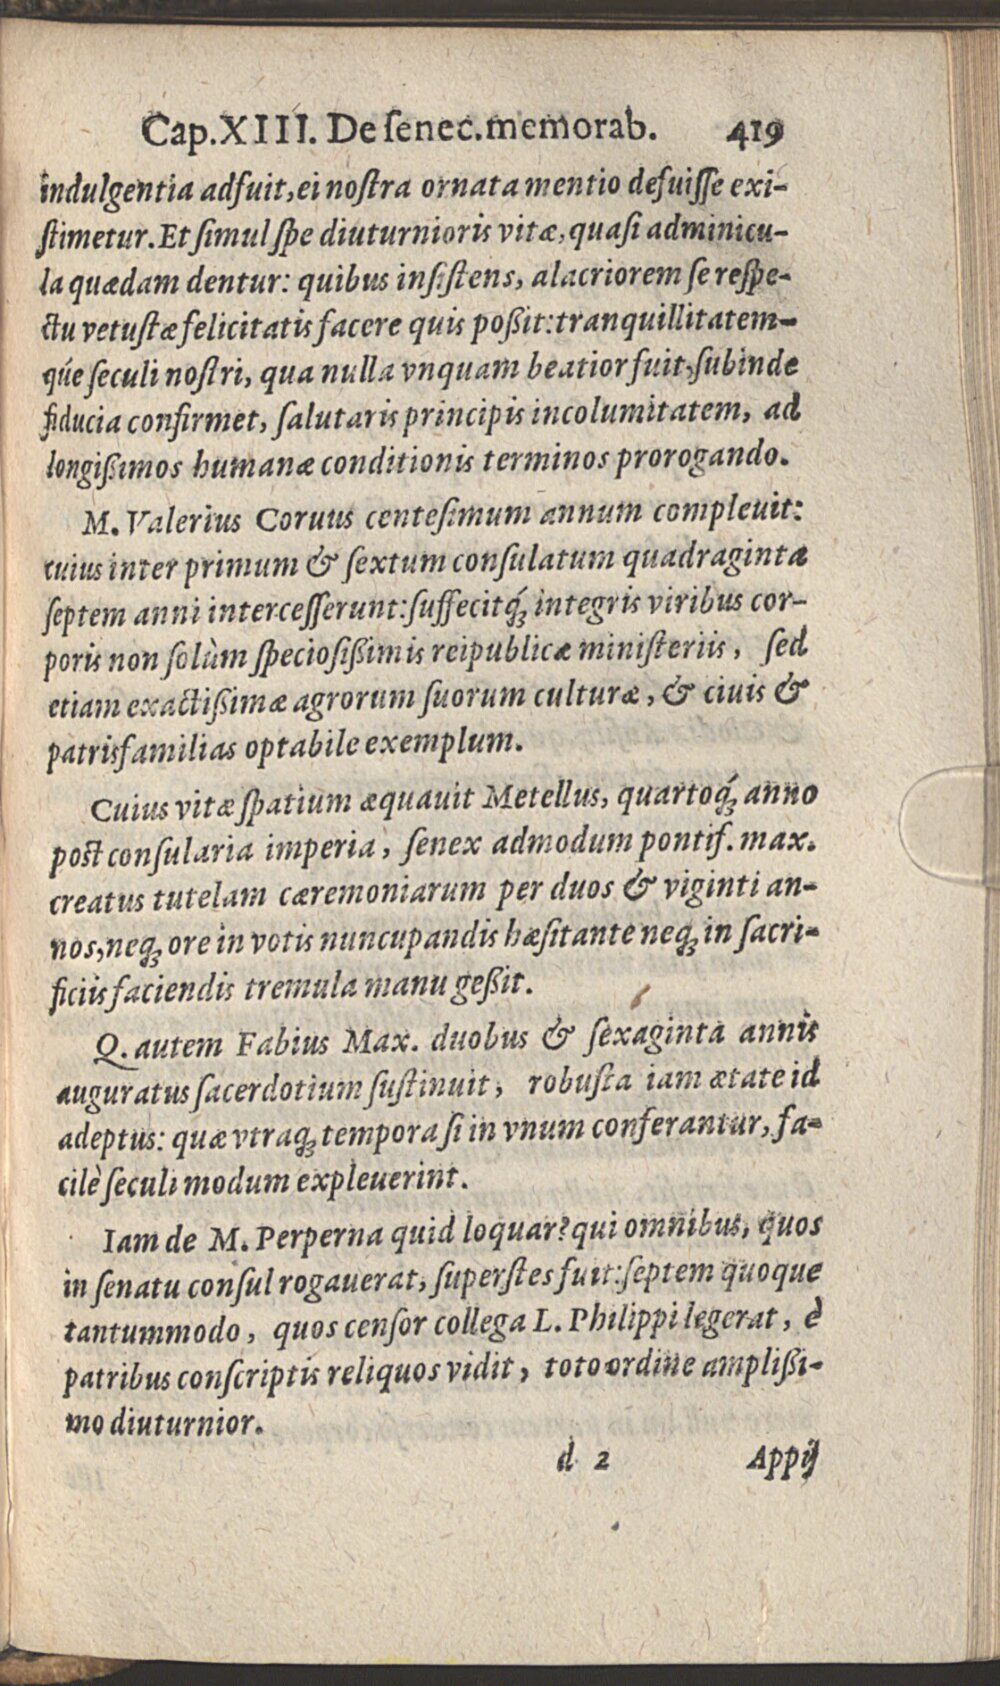 Cap. XIII. De ſenec. memorab. 419
indulgentia adfuit, ei noſtra ornata mentio defuiſſe exi-
ſtimetur. Et ſimul ſpe diuturnioris vitæ, quaſi adminicu-
la quædam dentur: quibus inſiſtens, alacriorem ſe reſpe-
ctu vetuſtæ felicitatis facere quis poßit: tranquillitatem-
q́ue ſeculi noſtri, qua nulla vnquam beatior fuit, ſubinde
fiducia confirmet, ſalutaris principis incolumitatem, ad
longißimos humanæ conditionis terminos prorogando.
M. Valerius Coruus centeſimum annum compleuit:
cuius inter primum & ſextum conſulatum quadraginta
ſeptem anni interceſſerunt: ſuffecitq́; integris viribus cor-
poris non ſolùm ſpecioſißimis reipublicæ miniſteriis, ſed
etiam exactißimæ agrorum ſuorum culturæ, & ciuis &
patrisfamilias optabile exemplum.
Cuius vitæ ſpatium æquauit Metellus, quartoq́; anno
poſt conſularia imperia, ſenex admodum pontif. max.
creatus tutelam cæremoniarum per duos & viginti an-
nos, neq; ore in votis nuncupandis hæſitante neq; in ſacri-
ficiis faciendis tremula manu geßit.
Q. autem Fabius Max. duobus & ſexaginta annis
auguratus ſacerdotium ſuſtinuit, robuſta iam ætate id
adeptus: quæ vtraq; tempora ſi in vnum conferantur, fa-
cilè ſeculi modum expleuerint.
Iam de M. Perperna quid loquar? qui omnibus, quos
in ſenatu conſul rogauerat, ſuperſtes fuit: ſeptem quoque
tantummodo, quos cenſor collega L. Philippi legerat, è
patribus conſcriptis reliquos vidit, toto ordine amplißi-
mo diuturnior.
d 2 Appij